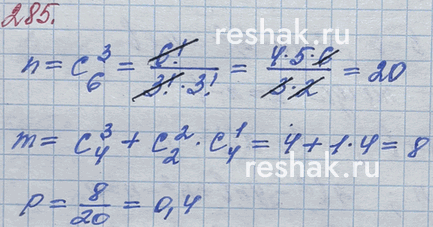 285.
reshak.ru
n = C₆³ = 6!/(3!·3!) = (4·5·6)/(3·2) = 20
reshak.ru
m = C₄³ + C₂²·C₄¹ = 4 + 1·4 = 8
reshak.ru
p = 8/20 = 0,4